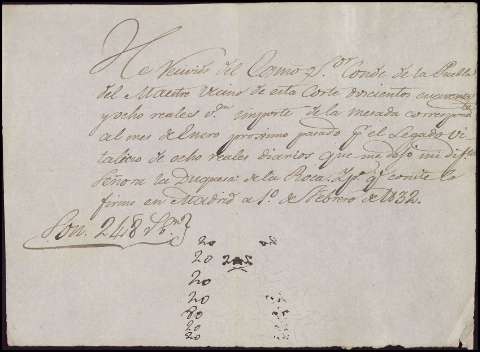 He recivido del Exmo S.or Conde de la Puebla
del Maestre vecino de esta Corte doscientos cuarenta
y ocho reales v.on importe de la mesada correspond.te
al mes de Enero proximo pasado p.r el Legado vi
talicio de ocho reales diarios que me dejó mi dif.ta
Señora la Duquesa de la Roca. Y p.a q.e conste lo
firmo en Madrid a 1.o de Febrero de 1832.
Son. 248 r.s v.n
20
20
20
20
80
20
20